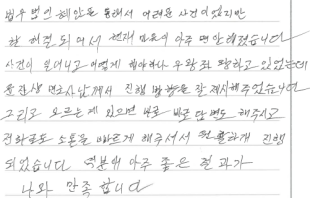 법무법인 혜안을 통해서 어려운 사건이 있지만
잘 해결되어서 현재 마음이 아주 편안해졌습니다
사건이 일어나고 어떻게 해야하나 우왕좌왕하고 있었는데
변호사님께서 진행 방향을 잘 제시해주었습니다
그리고 모르는게 있으면 바로 바로 답변도 해주시고
전화로도 소통을 빠르게 해주셔서 원활하게 진행
되었습니다 덕분에 아주 좋은 결과가
나와 만족합니다